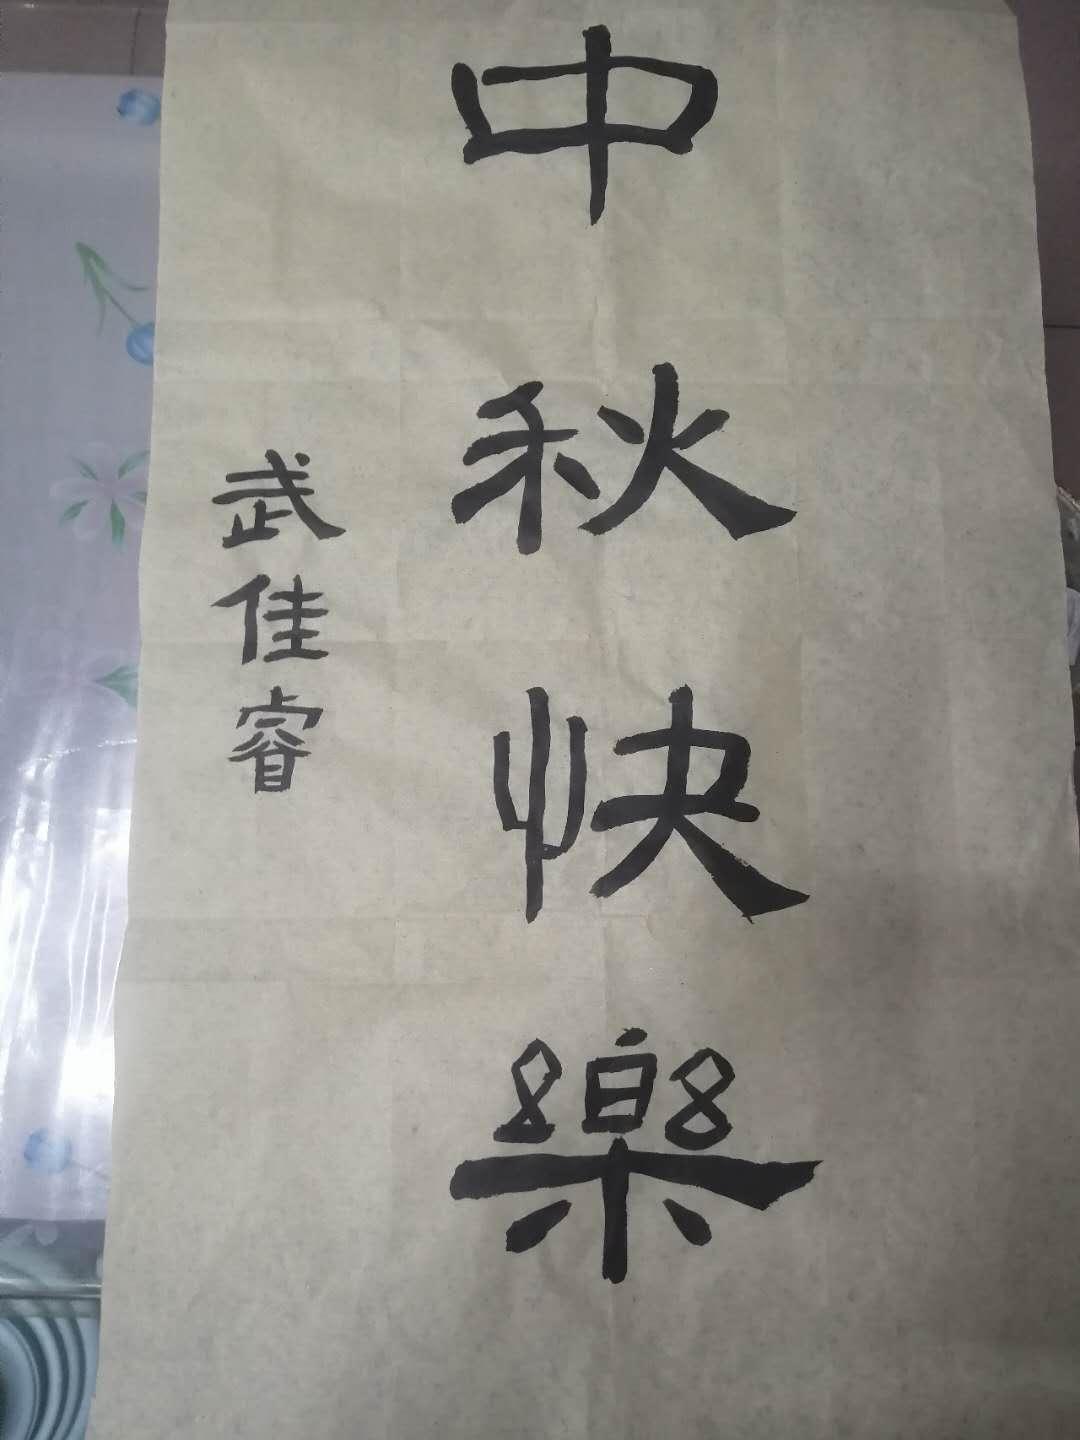 中秋快樂
武佳睿